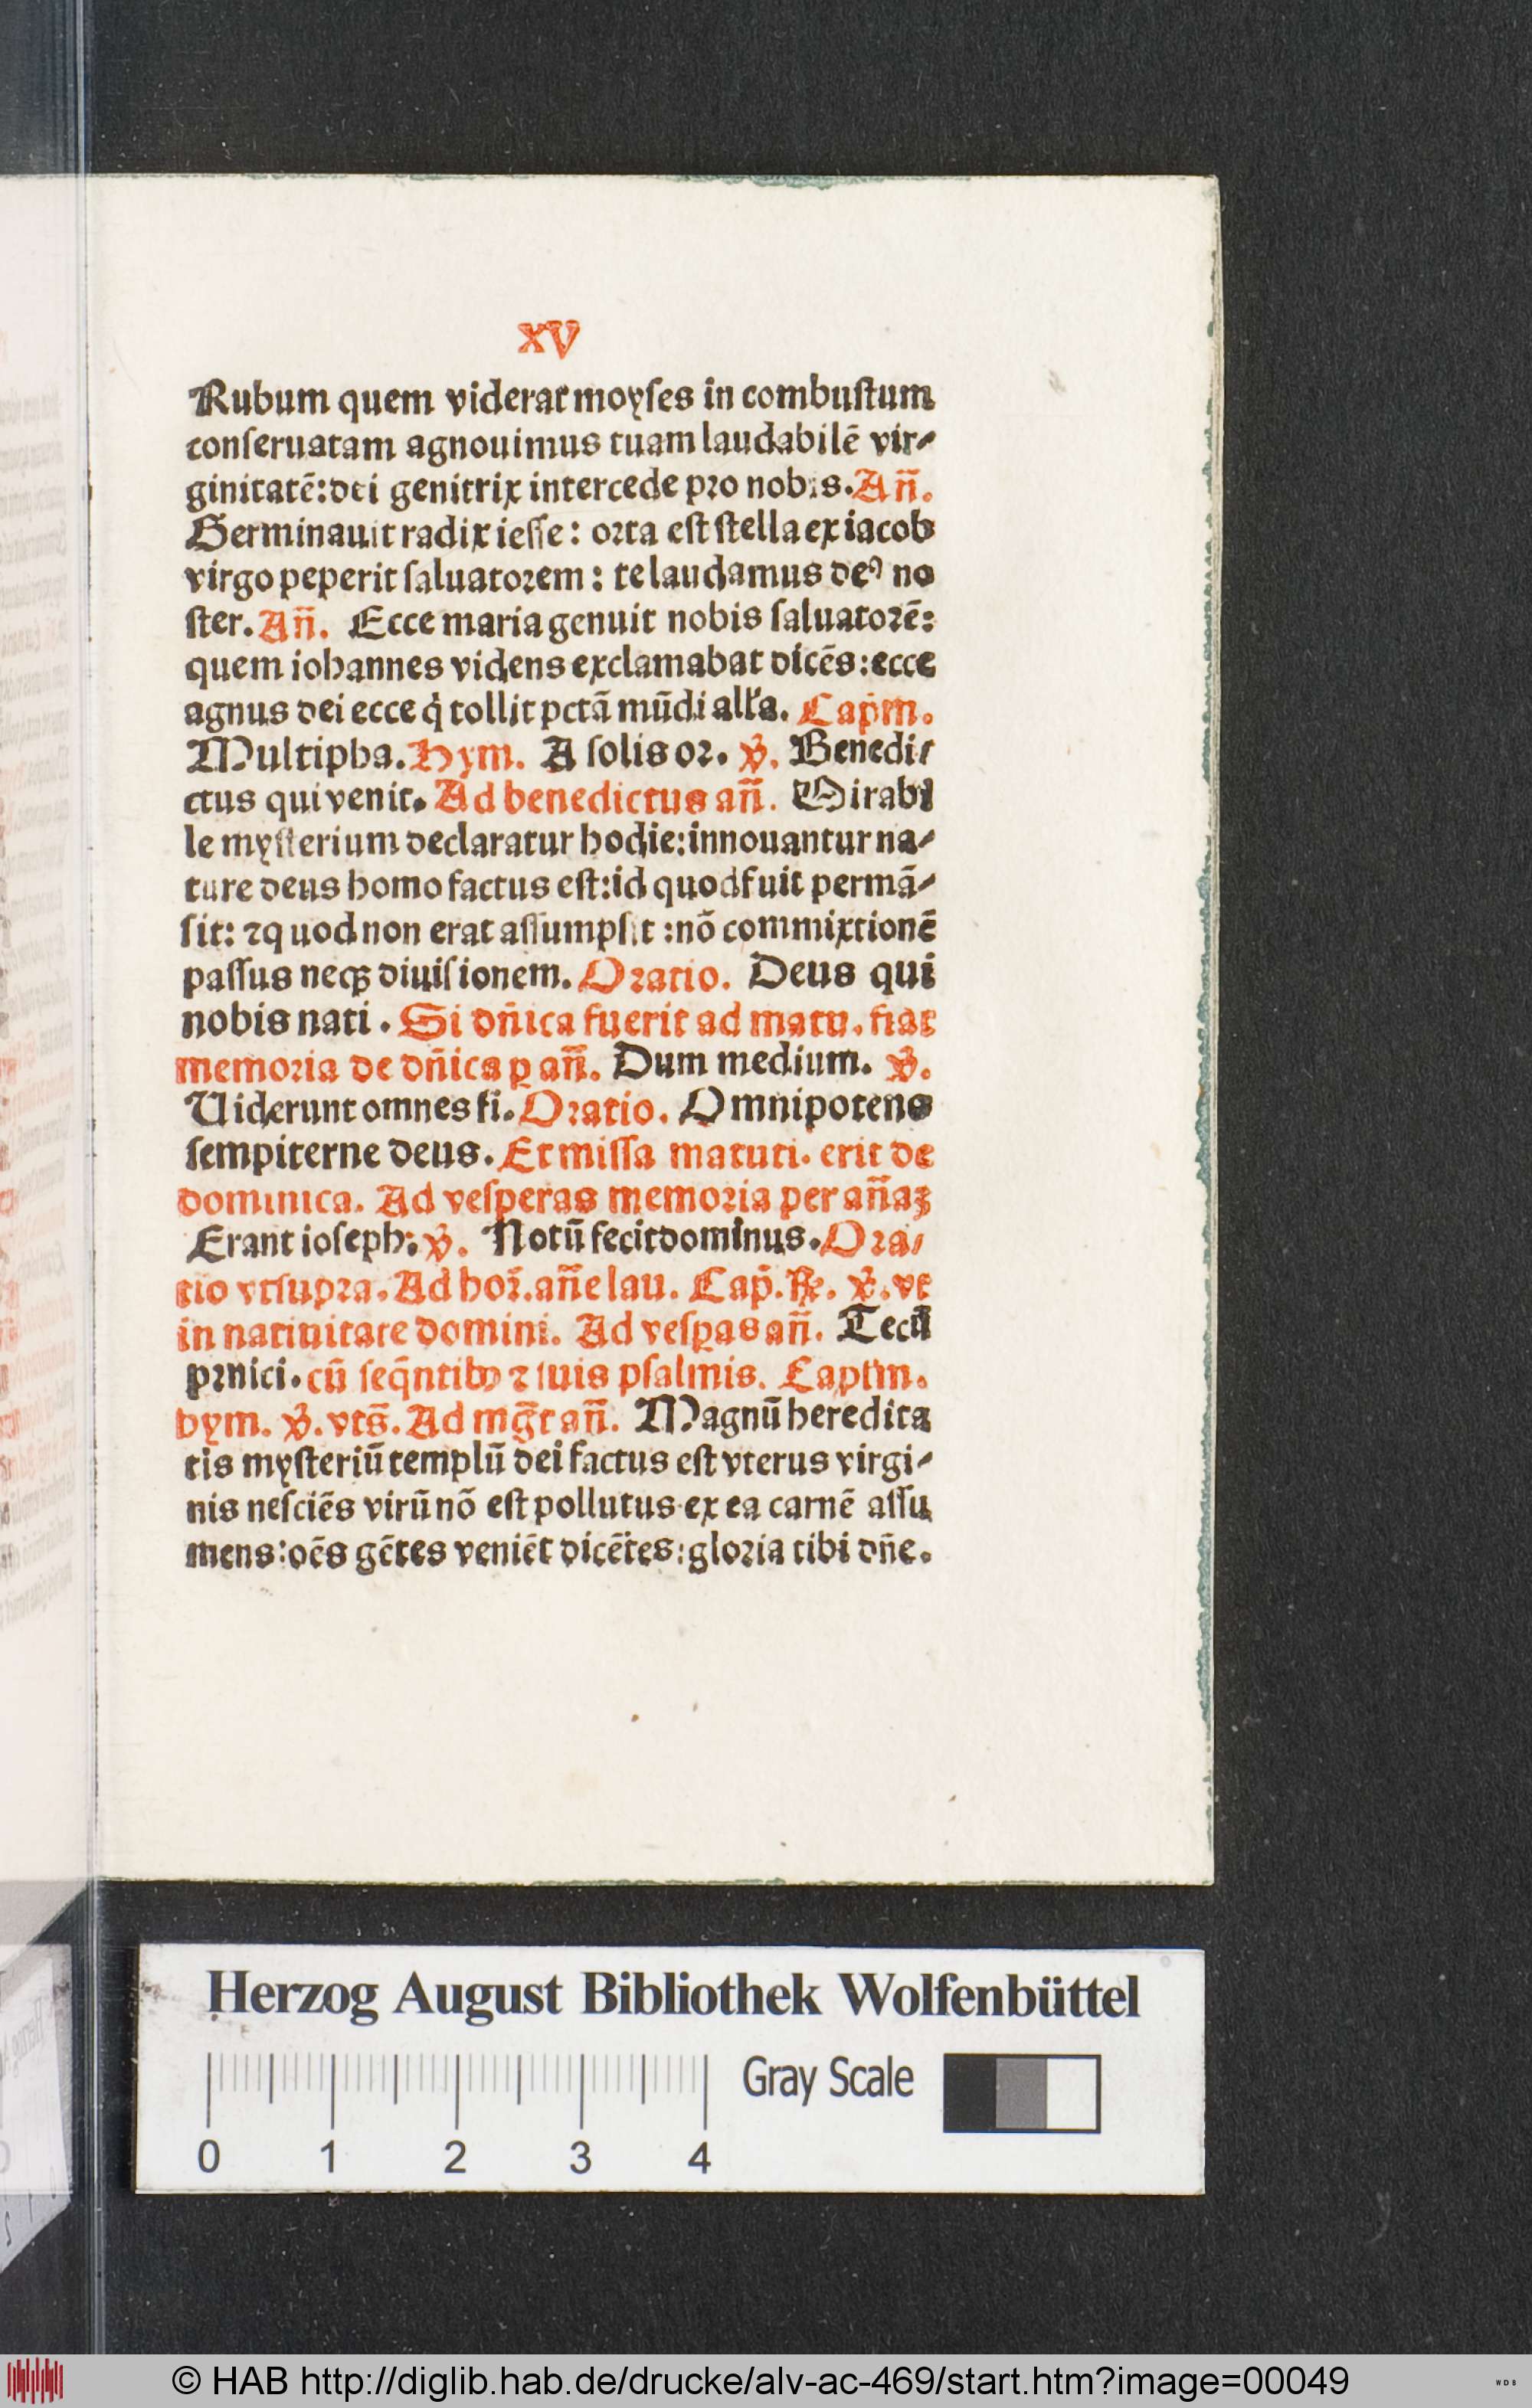 xv
Rubum quem viderat moyſes in combuſtum
conſeruatam agnouimus tuam laudabilē vir⸗
ginitatē: dei genitrix intercede pro nobis. Añ.
Germinauit radix ieſſe: orta eſt ſtella ex iacob
virgo peperit ſaluatorem: te laudamus deꝰ no
ſter. Añ. Ecce maria genuit nobis ſaluatorē:
quem iohannes videns exclamabat dicēs: ecce
agnus dei ecce q̇ tollit pctā mūdi alľa. Capm̄.
Multipha. Hym. A ſolis or. ℣. Benedi⸗
ctus qui venit. Ad benedictus añ. Mirabi
le myſterium declaratur hodie: innouantur na⸗
ture deus homo factus eſt: id quod fuit permā⸗
ſit: ⁊ quod non erat aſſumpſit: nō commixtionē
paſſus neqꝫ diuiſionem. Oratio. Deus qui
nobis nati. Si dñica fuerit ad matu. fiat
memoria de dñica ꝑ añ. Dum medium. ℣.
Viderunt omnes fi. Oratio. Omnipotens
ſempiterne deus. Et miſſa matuti. erit de
dominica. Ad veſperas memoria per añaꝫ
Erant ioſeph. ℣. Notū fecit dominus. Ora⸗
tio vt ſupra. Ad hor̄. añe lau. Cap̄. ℟. ℣. vt
in natiuitate domini. Ad veſꝑas añ. Tecū
prnici. cū ſeq̄ntibꝰ ⁊ ſuis pſalmis. Captm̄.
hym. ℣. vts̄. Ad mḡt añ. Magnū heredita
tis myſteriū templū dei factus eſt vterus virgi⸗
nis neſciēs virū nō eſt pollutus ex ea carnē aſſu
mens: oēs gētes veniēt dicētes: gloria tibi dñe.
Herzog August Bibliothek Wolfenbüttel
Gray Scale
0 1 2 3 4
© HAB http://diglib.hab.de/drucke/alv-ac-469/start.htm?image=00049